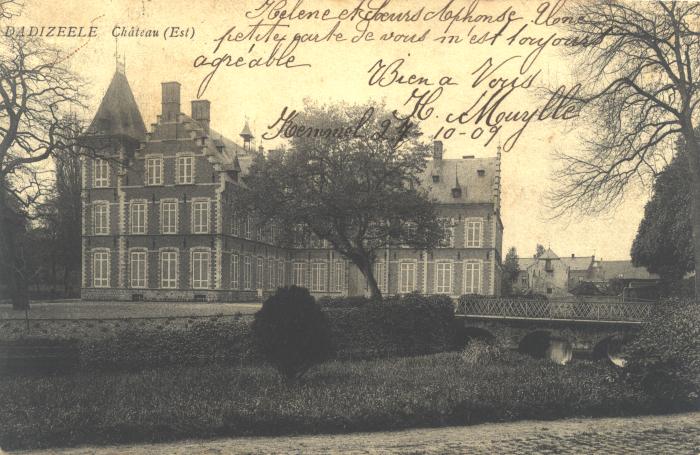 DADIZEELE Château (Est)
Helene et Sœurs Alphonse Une
petite carte de vous m'est toujours
agréable
Bien a Vous
H. Muylle
Kemmel 24 10-09